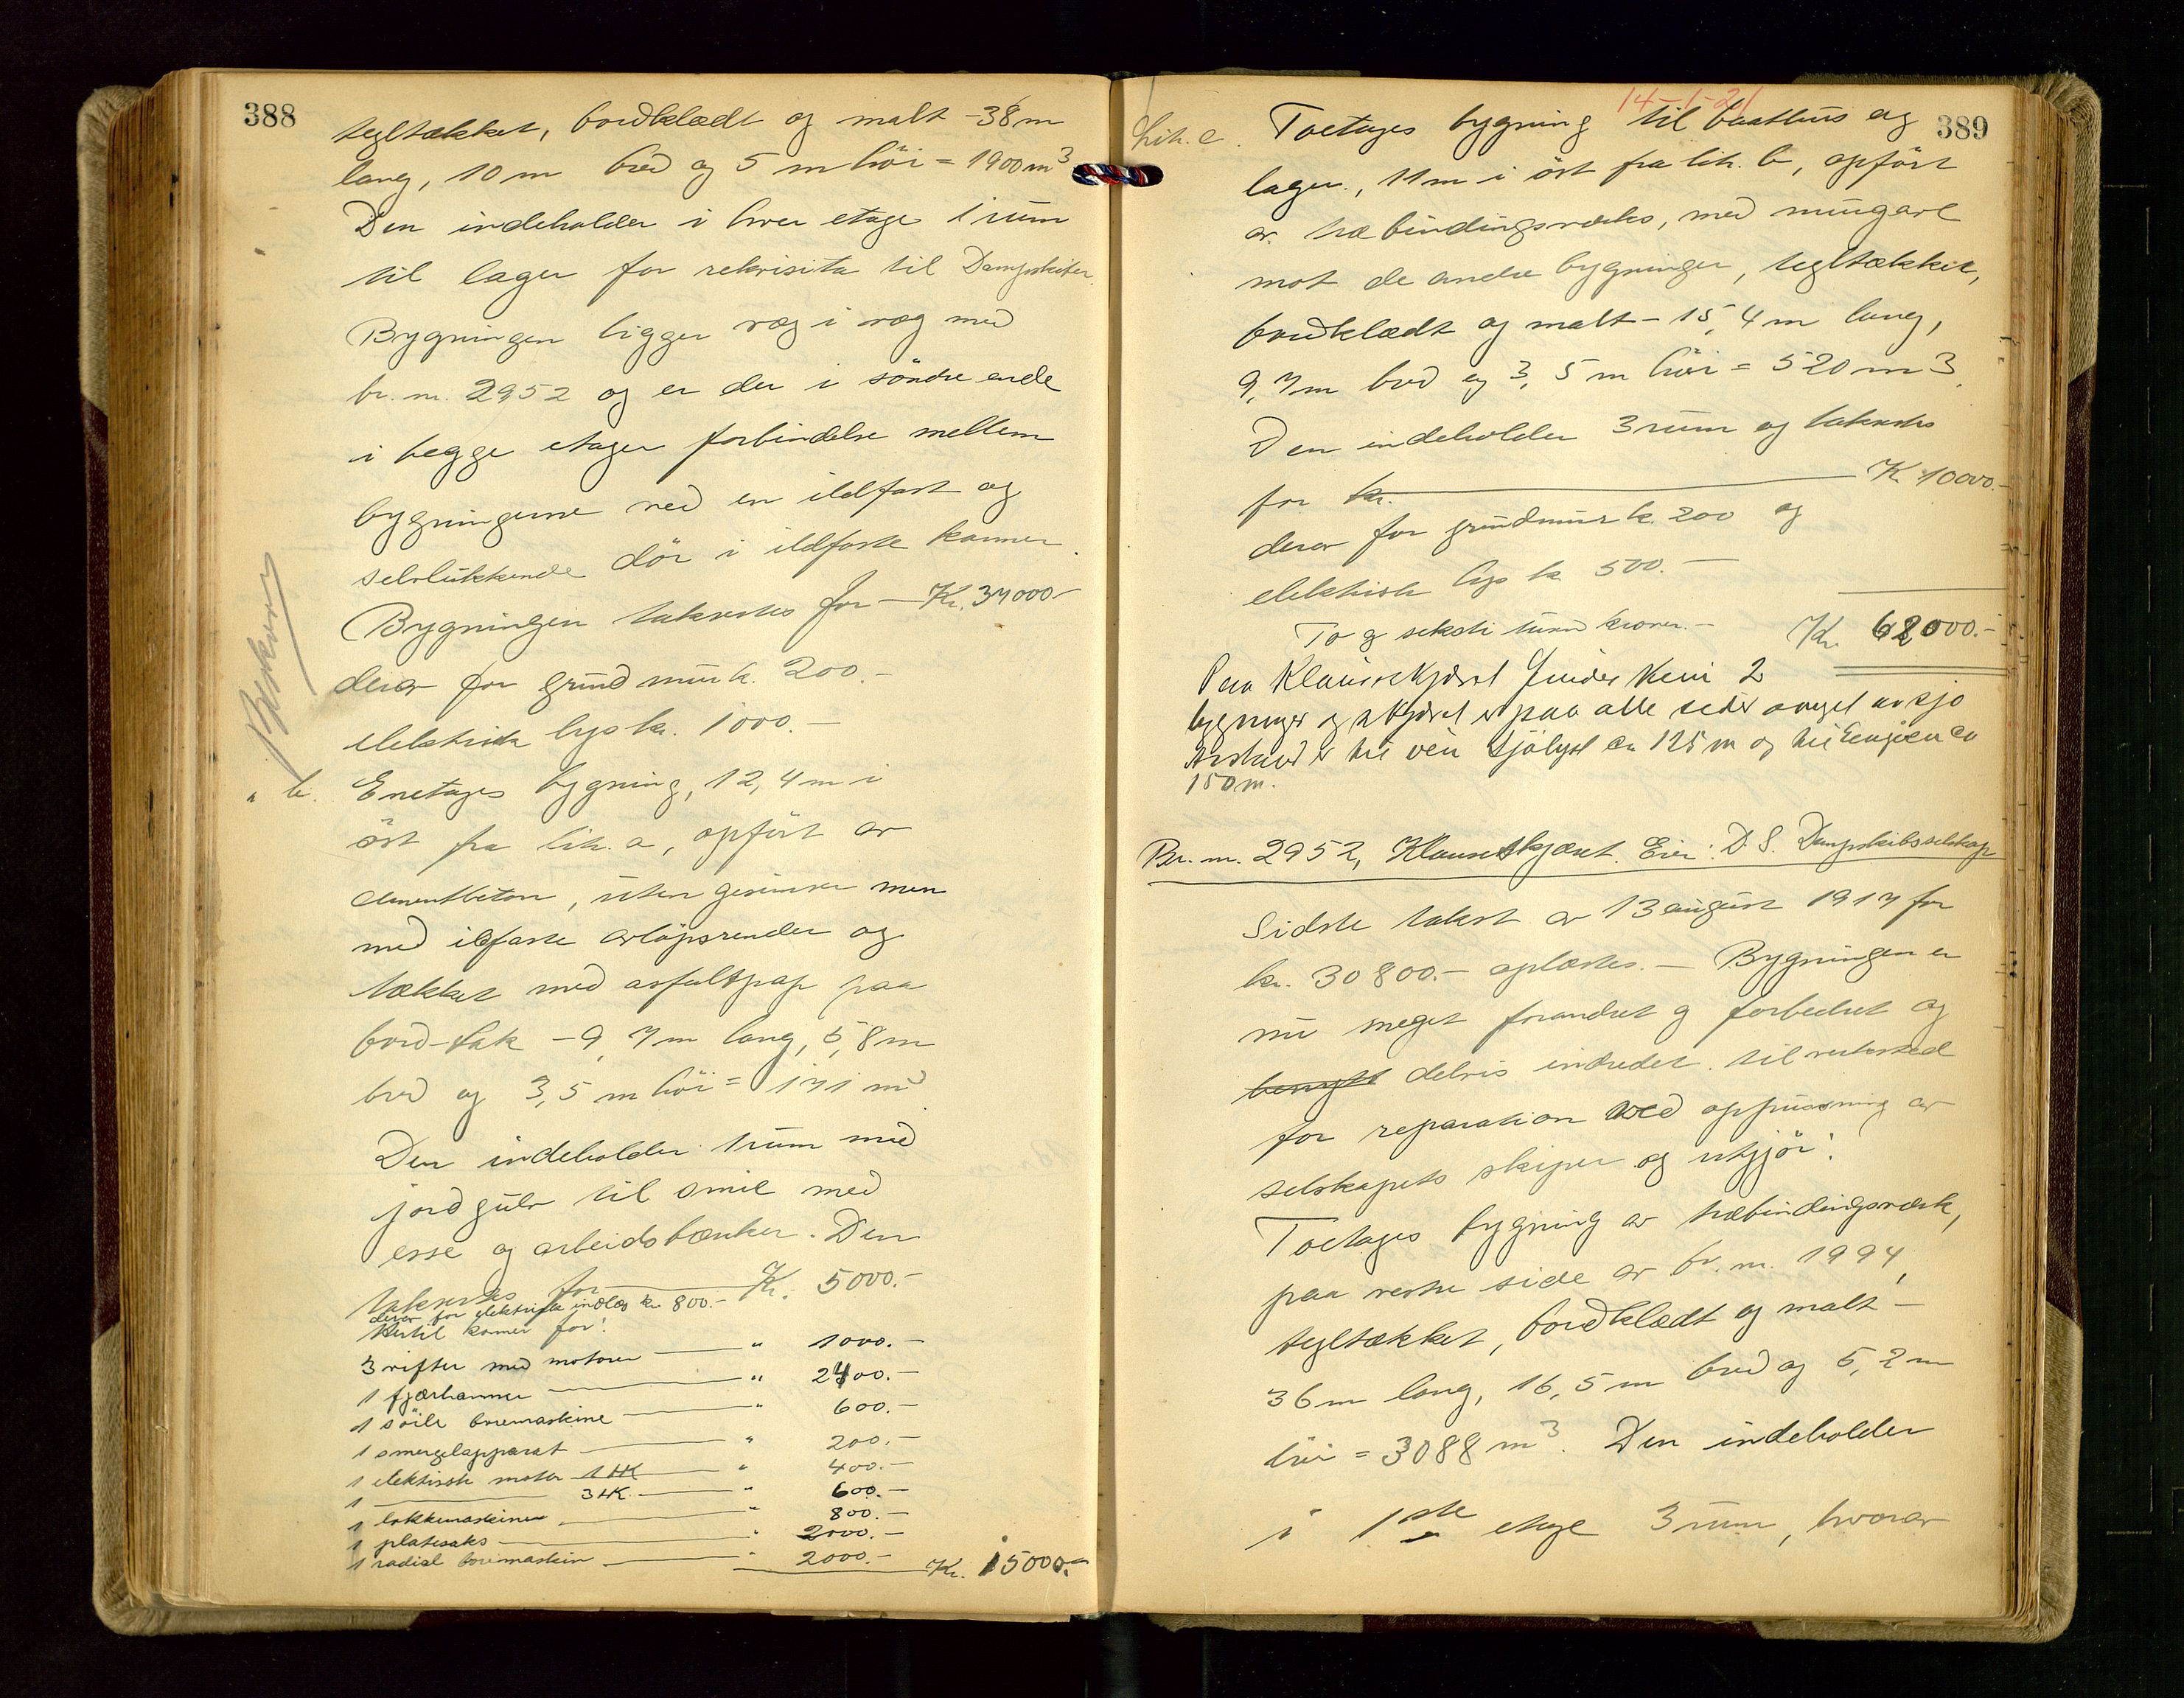 388
tegltækket, bordklædt og malt - 38 m
lang, 10 m bred og 5 m höi = 1900 m³
Den indeholder i hver etage 1 rum
til lager for rekvisita til Dampskiber.
Bygningen ligger væg i væg med
br. nr. 2952 og er der i söndre ende
i begge etager forbindelse mellem
bygningerne ved en ildfast og
selvlukkende dör i ildfaste karmer.
Bygningen takseres for — Kr. 37000.-
derav for grundmur k. 200.-
elektrisk lys kr. 1000.-
" b. Enetages bygning, 12,4 m i
öst fra lit. a, opfört av
cementbeton, uten gesimser men
med ildfaste avlöpsrender og
tækket med asfaltpap paa
bord-tak - 9,7 m lang, 5,8 m
bred og 3,5 m höi = 171 m³
Den indeholder 1 rum med
jordgulv til smie med
esse og arbeidsbænker. Den
takseres for — Kr. 5000.-
derav for elektriske indlæg kr 800.-
Hertil kommer for:
3 vifter med motorer — " 1000.-
1 fjærhammer — " 2400.-
1 söile boremaskine — " 600.-
1 smergelapparat — " 200.-
1 elektrisk motor 1 HK — " 400.-
1 — 3 HK. — " 600.-
1 lokkemaskine — " 800.-
1 platesaks — " 2000.-
1 radial boremaskin — " 2000.- Kr. 15000.-
14-1-21
389
Lit. c. Toetages bygning til baathus og
lager, 11 m i öst fra lit. b, opfört
av træbindingsverks, med murgavl
mot de andre bygninger, tegltækket,
bordklædt og malt - 15,4 m lang,
9,7 m bred og 3,5 m höi = 520 m3.
Den indeholder 3 rum og takseres
for kr. — K. 10000.-
derav for grundmur k. 200 og
elektrisk lys k. 500.-
To og seksti tusen kroner.- Kr. 62000.-
Paa Klausskjæret findes kun 2
bygninger og skjæret er paa alle sider omgit av sjø
Avstand er til vei Sjølyst ca 125 m og til Engøen ca
150 m.
Br. nr. 2952, Klauseskjæret. Eier: D. S. Dampskibsselskap
Sidste takst av 13 august 1917 for
kr. 30800.- oplæstes. - Bygningen er
nu meget forandret og forbedret og
benyttet delvis indredet til verksted
for reparation ved oppussning av
selskapets skiper og utgjör:
Toetages bygning av træbindingsverk,
paa vestre side av br. nr. 1994,
tegltækket, bordklædt og malt -
36 m lang, 16,5 m bred og 5,2 m
höi = 3088 m³. Den indeholder
i 1ste etage 3 rum, hvorav